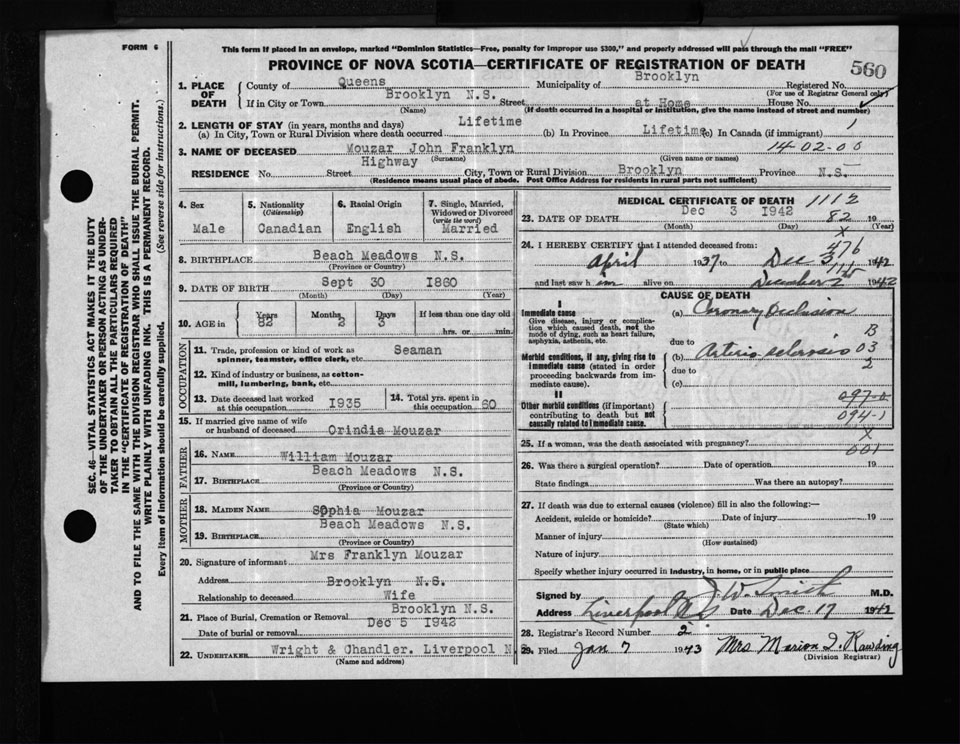 FORM 6
This form if placed in an envelope, marked "Dominion Statistics—Free, penalty for improper use $300," and properly addressed will pass through the mail "FREE"
PROVINCE OF NOVA SCOTIA—CERTIFICATE OF REGISTRATION OF DEATH
560
SEC. 46—VITAL STATISTICS ACT MAKES IT THE DUTY
OF THE UNDERTAKER OR PERSON ACTING AS UNDER-
TAKER TO OBTAIN ALL THE PARTICULARS REQUIRED
IN THE "CERTIFICATE OF REGISTRATION OF DEATH"
AND TO FILE THE SAME WITH THE DIVISION REGISTRAR WHO SHALL ISSUE THE BURIAL PERMIT.
WRITE PLAINLY WITH UNFADING INK. THIS IS A PERMANENT RECORD.
Every item of information should be carefully supplied. (See reverse side for instructions.)
1. PLACE OF DEATH
County of Queens Municipality of Brooklyn Registered No.
(For use of Registrar General only)
If in City or Town Brooklyn N.S. Street at Home House No.
(Name) (If death occurred in a hospital or institution, give the name instead of street and number)
2. LENGTH OF STAY (in years, months and days)
(a) In City, Town or Rural Division where death occurred Lifetime (b) In Province Lifetime (c) In Canada (if immigrant) 1
3. NAME OF DECEASED Mouzar John Franklyn 14-02-00
(Surname) (Given name or names)
RESIDENCE No. Highway Street City, Town or Rural Division Brooklyn Province N.S.
(Residence means usual place of abode. Post Office Address for residents in rural parts not sufficient)
4. Sex
Male
5. Nationality
(Citizenship)
Canadian
6. Racial Origin
English
7. Single, Married,
Widowed or Divorced
(write the word)
Married
8. BIRTHPLACE Beach Meadows N.S.
(Province or Country)
9. DATE OF BIRTH Sept 30 1860
(Month) (Day) (Year)
10. AGE in
Years Months Days If less than one day old
82 2 3 hrs. or min.
OCCUPATION
11. Trade, profession or kind of work as
spinner, teamster, office clerk, etc. Seaman
12. Kind of industry or business, as cotton-
mill, lumbering, bank, etc.
13. Date deceased last worked
at this occupation 1935
14. Total yrs. spent in
this occupation 60
15. If married give name of wife
or husband of deceased Orindia Mouzar
FATHER
16. NAME William Mouzar
17. BIRTHPLACE Beach Meadows N.S.
(Province or Country)
MOTHER
18. MAIDEN NAME Sophia Mouzar
19. BIRTHPLACE Beach Meadows N.S.
(Province or Country)
20. Signature of informant Mrs Franklyn Mouzar
Address Brooklyn N.S.
Relationship to deceased Wife
21. Place of Burial, Cremation or Removal Brooklyn N.S.
Date of burial or removal Dec 5 1942
22. UNDERTAKER Wright & Chandler. Liverpool N.S
(Name and address)
MEDICAL CERTIFICATE OF DEATH 1112
23. DATE OF DEATH Dec 3 1942 82 19
(Month) (Day) (Year)
X
24. I HEREBY CERTIFY that I attended deceased from: 476
April 1937 to Dec 3 1942
and last saw him alive on December 2nd 1942
CAUSE OF DEATH
I
Immediate cause
Give disease, injury or complica-
tion which caused death, not the
mode of dying, such as heart failure,
asphyxia, asthenia, etc.
(a) Coronary Occlusion
due to B
Morbid conditions, if any, giving rise to
immediate cause (stated in order
proceeding backwards from im-
mediate cause).
(b) Arterio sclerosis 03
due to 2
(c)
II
Other morbid conditions (if important)
contributing to death but not
causally related to immediate cause.
097-0
094-1
X
25. If a woman, was the death associated with pregnancy? 001
26. Was there a surgical operation? Date of operation 19
State findings Was there an autopsy?
27. If death was due to external causes (violence) fill in also the following:—
Accident, suicide or homicide? Date of injury 19
(State which)
Manner of injury
(How sustained)
Nature of injury
Specify whether injury occurred in industry, in home, or in public place
Signed by J. W. Smith M.D.
Address Liverpool N.S Date Dec. 17 1942
28. Registrar's Record Number 2
29. Filed Jan 7 1943 Mrs Marion I. Rawding
(Division Registrar)